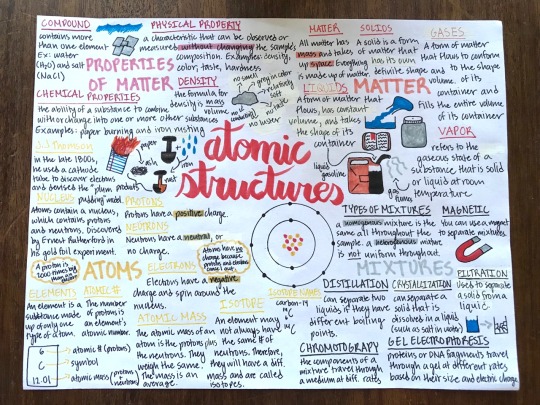 COMPOUND
contains more
than one element
Ex: water
(H₂O) and salt
(NaCl)
PHYSICAL PROPERTY
a characteristic that can be observed or
measured without changing the sample's
composition. Examples: density,
color, taste, hardness
PROPERTIES
OF MATTER
DENSITY
the formula for
density is mass
volume
CHEMICAL PROPERTIES
the ability of a substance to combine
with or change into one or more other substances
Examples: paper burning and iron rusting
MATTER
All matter has
mass and takes
up space. Everything
is made up of matter.
SOLIDS
A solid is a form
of matter that
has its own
definite shape and
volume.
GASES
A form of matter
that flows to conform
to the shape
of its
container and
fills the entire volume
of its container
LIQUIDS
A form of matter
that flows, has constant
volume, and takes
the shape of its
container
MATTER
VAPOR
refers to the
gaseous state of a
substance that is solid
or liquid at room
temperature
atomic
structures
J.J. Thomson
in the late 1800s,
he used a cathode
tube to discover electrons
and devised the "plum
pudding" model.
paper
ash
iron
rust
products
liquid
gasoline
gas
fumes
NUCLEUS
Atoms contain a nucleus,
which contains protons
and neutrons. Discovered
by Ernest Rutherford in
his gold foil experiment.
PROTONS
Protons have a positive charge.
NEUTRONS
Neutrons have a neutral or
no charge.
A proton is
Atoms have no
charge because
protons and electrons
cancel out.
ATOMS
ELECTRONS
Electrons have a negative
charge and spin around the
nucleus.
ELEMENTS
An element is a
substance made
up of only one
type of atom.
ATOMIC #
The number
of protons
is an element's
atomic number.
ATOMIC MASS
The atomic mass of an
atom is the protons plus
the neutrons. They
weigh the same.
The mass is an
average.
ISOTOPE
An element may
not always have
the same # of
neutrons. Therefore,
they will have a diff.
mass and are called
isotopes.
ISOTOPE NAMES
carbon-14
¹⁴C
6
C
12.01
atomic # (protons)
symbol
atomic mass (protons + neutrons)
TYPES OF MIXTURES
a homogenous mixture is the
same all throughout the
sample. a heterogenous mixture
is not uniform throughout.
MAGNETIC
You can use a magnet
to separate mixtures.
MIXTURES
DISTILLATION
Can separate two
liquids, if they have
different boiling
points.
CRYSTALLIZATION
can separate a
solid that is
dissolved in a liquid
(such as salt in water)
FILTRATION
Used to separate
a solid from a
liquid.
CHROMOTOGRAPY
the components of a
mixture travel through
a medium at diff. rates
GEL ELECTROPHORESIS
proteins or DNA fragments travel
through a gel at different rates
based on their size and electric charge